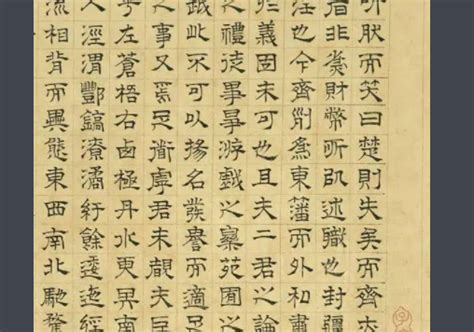 听肰而笑曰楚則失矣而齊
者非為財幣所以述職也封
淫也今齊列為東藩而外
於義固未可也且夫二君之
之禮徒事爭游戲之樂苑囿之
越此不可以揚名發譽而適足
之事又焉足道虖君未覩夫
乎左蒼梧右西極丹水更其南
入涇渭酆鎬潦潏紆餘逶迤
流相背而異態東西南北馳騖